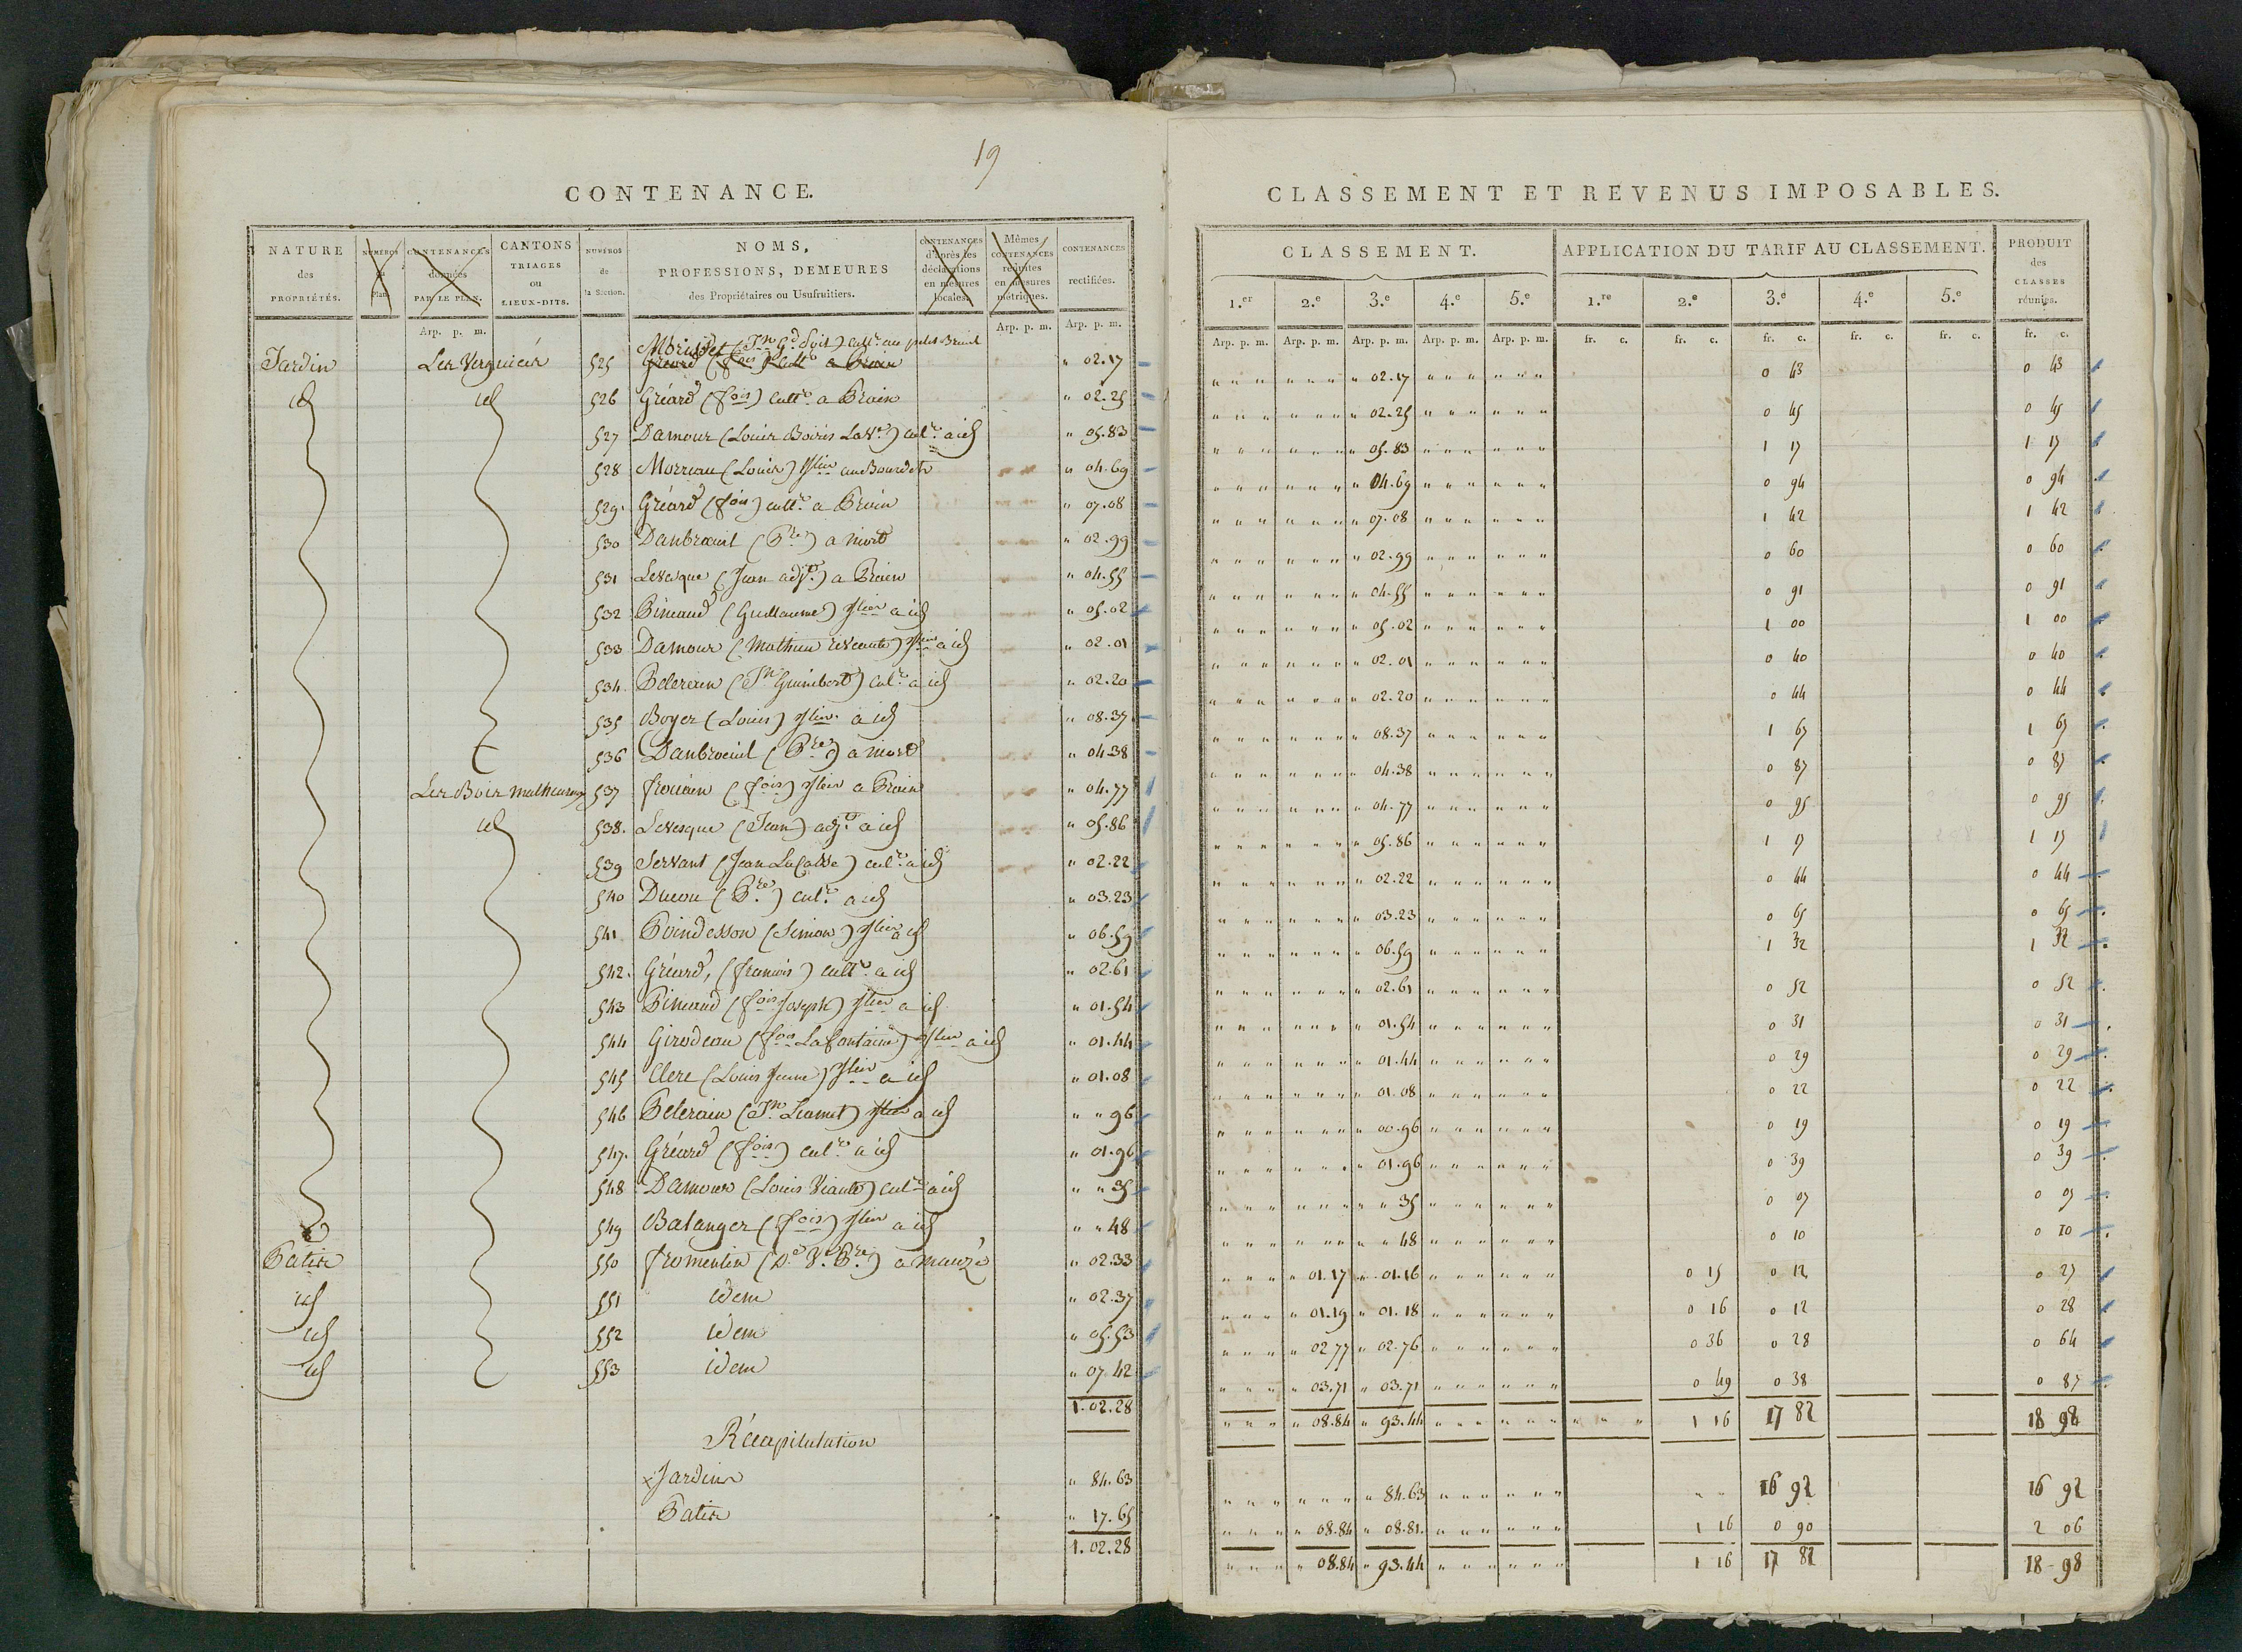 19
CONTENANCE.
NATURE des PROPRIÉTÉS. NUMÉROS du Plan. CONTENANCES données PAR LE PLAN. CANTONS TRIAGES ou LIEUX-DITS. NUMÉROS de la Section. NOMS, PROFESSIONS, DEMEURES des Propriétaires ou Usufruitiers. CONTENANCES d'après les déclarations en mesures locales. Mêmes CONTENANCES réduites en mesures métriques. CONTENANCES rectifiées.
Arp. p. m. Arp. p. m. Arp. p. m.
Jardin 525 Gréard (fois) cultr a Brain " 02.17
id id 526 Gréard (fois) cultr a Brain " 02.25
527 Damour (Louis) cultr a id " 05.83
528 Moreau (Louis) " 04.69
529. Gréard (fois) cultr a Brain " 07.08
530 Danbroeuil (Pre) a niort " 02.99
531 Levesque (Jean adjt) a Brain " 04.55
532 (Guillaume) jlier a id " 05.02
533 Damour (Mathieu) jlier a id " 02.01
534. Pelerain (Jn Guimbert) culr a id " 02.20
535 Boyer (Louis) jlier a id " 08.37
536 Danbroeuil (Pre) a niort " 04.38
Les Bois malheureux 537 frouin (fois) jlier a Brain " 04.77
id 538. Levesque (Jean) adjt a id " 05.86
539 Servant (Jean) culr a id " 02.22
540 (Pre) culr a id " 03.23
541 Poindesson (Simon) jlier a id " 06.59
542. Gréard, (francois) cultr a id " 02.61
543 (fois Joseph) jlier a id " 01.54
544 Girodeau (fois Lafontaine) jlier a id " 01.44
545 Clerc (Louis Jeune) jlier a id " 01.08
546 Pelerain (Jn) jlier a id " " 96
547. Gréard (fois) culr a id " 01.96
548 Damour (Louis) culr a id " " 35
549 Balanger (fois) jlier a id " " 48
Patis 550 fromentin (De Ve Pre) a mauzé " 02.33
id 551 idem " 02.37
id 552 idem " 05.53
id 553 idem " 07.42
1.02.28
Récapitulation
Jardins " 84.63
Patis " 17.65
1.02.28
CLASSEMENT ET REVENUS IMPOSABLES.
CLASSEMENT. APPLICATION DU TARIF AU CLASSEMENT. PRODUIT des CLASSES réunies.
1.er 2.e 3.e 4.e 5.e 1.re 2.e 3.e 4.e 5.e
Arp. p. m. Arp. p. m. Arp. p. m. Arp. p. m. Arp. p. m. fr. c. fr. c. fr. c. fr. c. fr. c. fr. c.
" 02.17 0 43 0 43
" 02.25 0 45 0 45
" 05.83 1 17 1 17
" 04.69 0 94 0 94
" 07.08 1 42 1 42
" 02.99 0 60 0 60
" 04.55 0 91 0 91
" 05.02 1 00 1 00
" 02.01 0 40 0 40
" 02.20 0 44 0 44
" 08.37 1 67 1 67
" 04.38 0 87 0 87
" 04.77 0 95 0 95
" 05.86 1 17 1 17
" 02.22 0 44 0 44
" 03.23 0 65 0 65
" 06.59 1 32 1 32
" 02.61 0 52 0 52
" 01.54 0 31 0 31
" 01.44 0 29 0 29
" 01.08 0 22 0 22
" 00.96 0 19 0 19
" 01.96 0 39 0 39
" " 35 0 07 0 07
" " 48 0 10 0 10
" 01.17 " 01.16 0 15 0 12 0 27
" 01.19 " 01.18 0 16 0 12 0 28
" 02.77 " 02.76 0 36 0 28 0 64
" 03.71 " 03.71 0 49 0 38 0 87
" 08.84 " 93.44 1 16 17 82 18 98
" 84.63 16 92 16 92
" 08.84 " 08.81 1 16 0 90 2 06
" 08.84 " 93.44 1 16 17 82 18 98